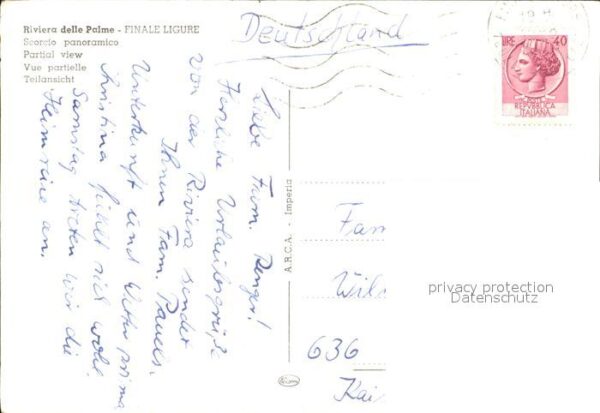 Riviera delle Palme - FINALE LIGURE
Scorcio panoramico
Partial view
Vue partielle
Teilansicht
Deutschland
LIRE 40
POSTE
REPVBBLICA
ITALIANA
Liebe Fam. Renger!
Herzliche Urlaubsgrüße
von der Riviera sendet
Ihnen Fam. Pauels.
Unterkunft und Wetter prima
Christina fühlt sich wohl.
Samstag treten wir die
Heimreise an.
A.R.C.A. - Imperia
Fam
Wil
636
Kai
privacy protection
Datenschutz